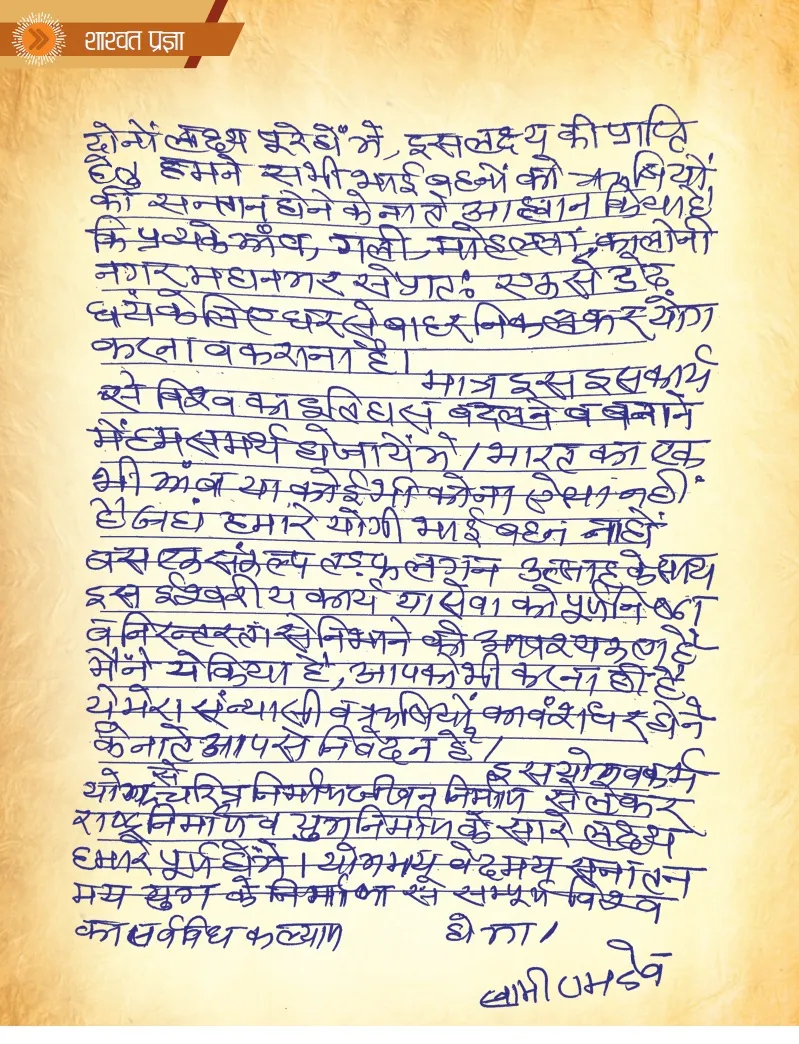 शाश्वत प्रज्ञा
दोनों लक्ष्य पूरे होंगे, इस लक्ष्य की प्राप्ति
हेतु हमने सभी भाई बहनों को ऋषियों
की सन्तान होने के नाते आह्वान किया है
कि प्रत्येक गाँव, गली, मोहल्ला, कालोनी
नगर महानगर से प्रातः एक से डेढ़
घंटे के लिए घर से बाहर निकलकर योग
करना व कराना है।
मात्र इस इस कार्य
से विश्व का इतिहास बदलने व बनाने
में हम समर्थ हो जायेंगे। भारत का एक
भी गाँव या कोई भी कोना ऐसा नहीं
है जहां हमारे योगी भाई बहन ना हों
बस एक संकल्प लगन उत्साह के साथ
इस ईश्वरीय कार्य या सेवा को पूर्ण निष्ठा
व निरन्तरता से निभाने की आवश्यकता है
मैंने ये किया है, आपको भी करना ही है
ये मेरा संन्यासी व ऋषियों का वंशधर होने
के नाते आपसे निवेदन है।
इस योग व कर्म
योग से चरित्र निर्माण जीवन निर्माण से लेकर
राष्ट्र निर्माण व युग निर्माण के सारे लक्ष्य
हमारे पूर्ण होंगे। योगमय वेदमय सनातन
मय युग के निर्माण से सम्पूर्ण विश्व
का सर्वविध कल्याण होगा।
स्वामी रामदेव